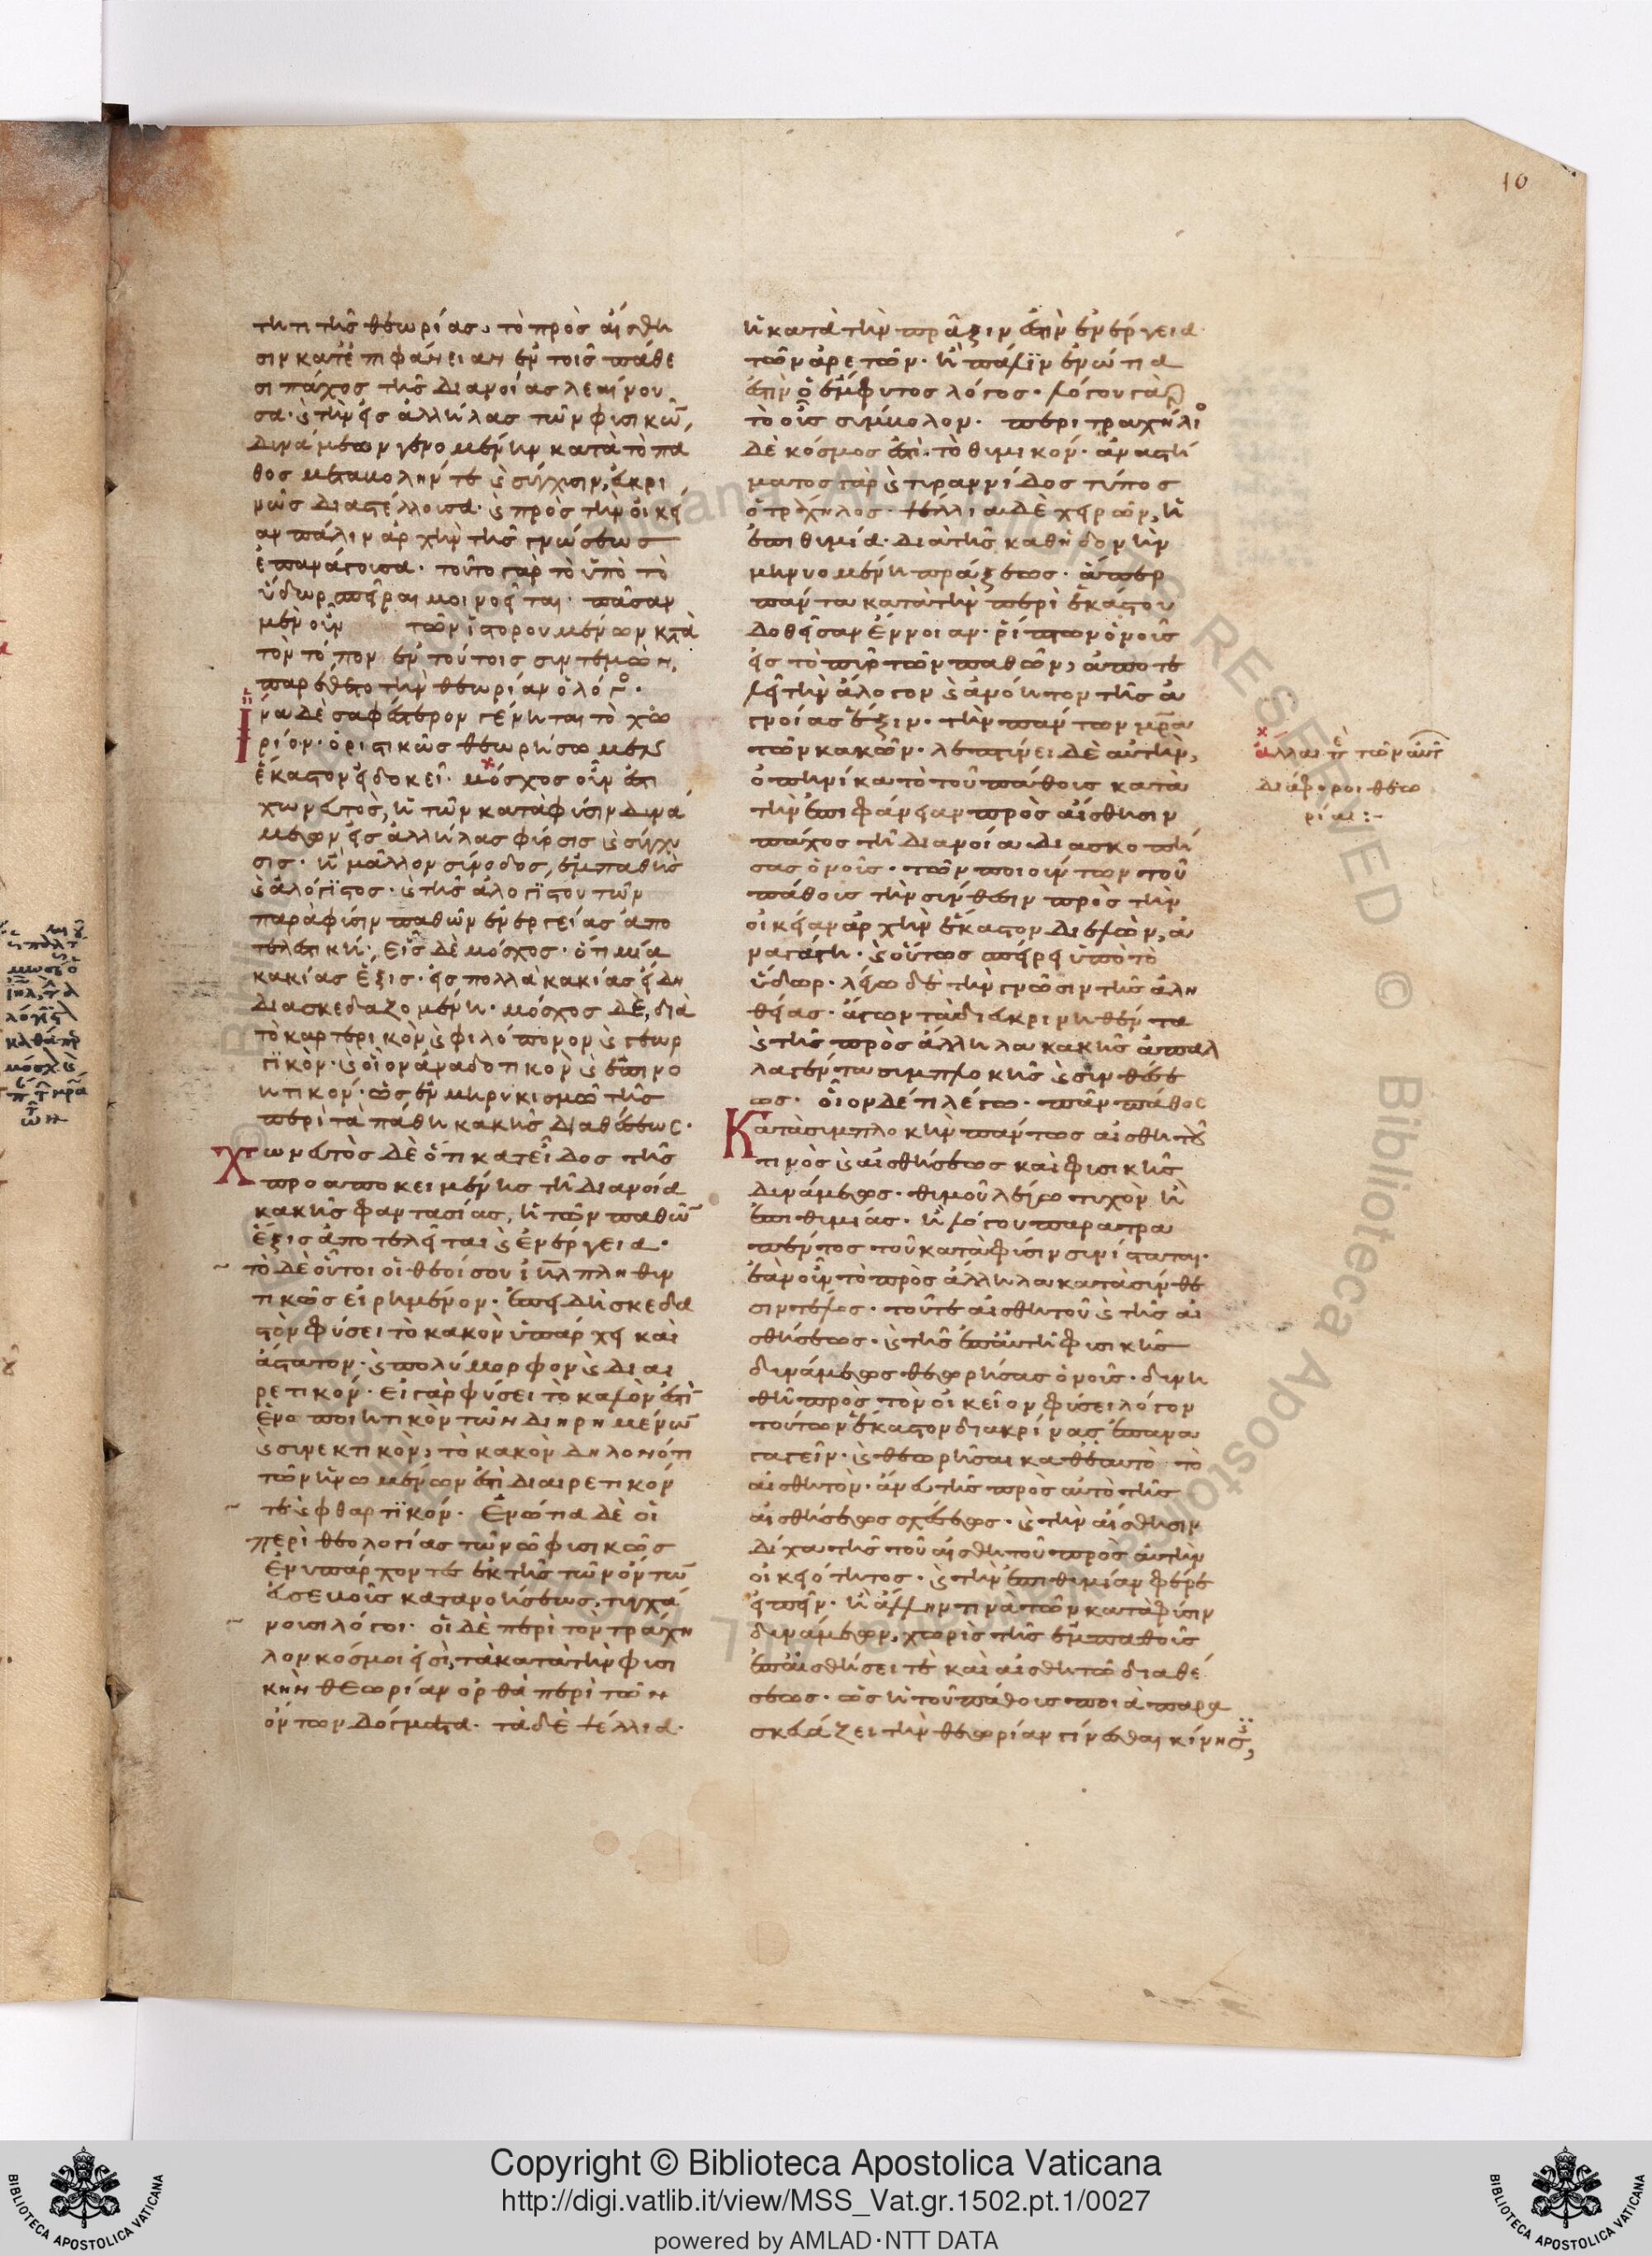 10
τητι τῆς θεωρίας, τὸ πρὸς αἴσθη
σιν κατ' ἐπιφάνειαν ἐν τοῖς πάθε
σι πάχος τῆς διανοίας λεαίνου
σα· καὶ τὴν εἰς ἀλλήλας τῶν φυσικῶν
δυνάμεων γενομένην κατὰ τὸ πά
θος μεταβολήν τε καὶ σύγχυσιν, ἀκρι
βῶς διαστέλλουσα· καὶ πρὸς τὴν οἰκεί
αν πάλιν ἀρχὴν τῆς γνώσεως
ἐπανάγουσα· τοῦτο γὰρ τὸ ὑπὸ τὸ
ὕδωρ σπεῖραί μοι νοεῖται· πᾶσαν
μὲν οὖν τῶν ἱστορουμένων κατὰ
τὸν τόπον ἐν τούτοις συντεμὼν,
παρέθετο τὴν θεωρίαν ὁ λόγος·
ἵνα δὲ σαφέστερον γένηται τὸ χω
ρίον· ὁριστικῶς θεωρήσωμεν
ἕκαστον εἰ δοκεῖ· μόσχος οὖν ἐστι
χωνευτὸς, ἡ τῶν κατὰ φύσιν δυνά
μεων εἰς ἀλλήλας φύρσις καὶ σύγχυ
σις· ἢ μᾶλλον σύνοδος, ἐμπαθὴς
καὶ ἀλόγιστος· καὶ τῆς ἀλογίστου τῶν
παρὰ φύσιν παθῶν ἐνεργείας ἀπο
τελεστική· εἷς δὲ μόσχος· ὅτι μία
κακίας ἕξις· εἰς πολλὰ κακίας εἴδη
διασκεδαζομένη· μόσχος δὲ, διὰ
τὸ καρτερικὸν καὶ φιλόπονον καὶ γεωρ
γικόν· καὶ οἷον ἀναδοτικὸν καὶ ἐπινο
ητικόν· ὡς ἐν μηρυκισμῶ τῆς
περὶ τὰ πάθη κακῆς διαθέσεως·
χωνευτὸς δὲ ὅτι κατ' εἶδος τῆς
προαποκειμένης τῆ διανοία
κακῆς φαντασίας, ἡ τῶν παθῶν
ἕξις ἀποτελεῖται καὶ ἐνέργεια·
τὸ δὲ οὗτοι οἱ θεοί σου ιηλ πληθυν
τικῶς εἰρημένον· ἐπειδὴ σκεδα
στὸν φύσει τὸ κακὸν ὑπάρχει καὶ
ἄστατον· καὶ πολύμορφον καὶ διαι
ρετικόν· εἰ γὰρ φύσει τὸ καλόν ἐστιν
ἑνοποιητικὸν τῶν διηρημένων
καὶ συνεκτικὸν, τὸ κακὸν δηλονότι
τῶν ἡνωμένων ἐστὶ διαιρετικόν
τε καὶ φθαρτικόν· ἐνώτια δὲ οἱ
περὶ θεολογίας τῶν ὧ φυσικῶς
ἐνυπάρχοντες ἐκ τῆς τῶν ὄντων
εὐσεβοῦς κατανοήσεως, τυγχά
νουσι λόγοι· οἱ δὲ περὶ τὸν τράχη
λον κόσμοι εἰσὶ, τὰ κατὰ τὴν φυσι
κὴν θεωρίαν ὀρθὰ περὶ τῶν
ὄντων δόγματα· τὰ δὲ ψέλλια·
ἡ κατὰ τὴν πρᾶξιν ἐστὶν ἐνέργεια
τῶν ἀρετῶν· ἢ πάλιν ἐνώτια
ἐστὶν ὁ ἔμφυτος λόγος· λόγου γὰρ
τὸ οὖς σύμβολον· περιτραχήλιος
δὲ κόσμος ἐστὶ· τὸ θυμικόν· ἀναστή
ματος γὰρ καὶ τυραννίδος τύπος
ὁ τράχηλος· ψέλλια δὲ χειρῶν, ἡ
ἐπιθυμία· διὰ τῆς καθ' ἡδονὴν
μηνυομένη πράξεως· ἅπερ
πάντα κατὰ τὴν περὶ ἑκάστου
δοθεῖσαν ἔννοιαν· ῥίπτων ὁ νοῦς
εἰς τὸ πῦρ τῶν παθῶν, ἀποτε
λεῖ τὴν ἄλογον καὶ ἀνόητον τῆς ἀ
γνοίας ἕξιν· τὴν πάντων μρα
τῶν κακῶν· λεπτύνει δὲ αὐτὴν,
ὁπηνίκα τὸ τοῦ πάθους κατὰ
τὴν ἐπιφάνειαν πρὸς αἴσθησιν
πάχος τῆ διανοία διασκοπή
σας ὁ νοῦς· τῶν ποιούντων τοῦ
πάθους τὴν σύνθεσιν πρὸς τὴν
οἰκείαν ἀρχὴν ἕκαστον διελὼν, ἀ
ναγάγη· καὶ οὕτως σπείρει ὑπὸ τὸ
ὕδωρ· λέγω δὲ τὴν γνῶσιν τῆς ἀλη
θείας· ἄγων τὰ διακριθέντα
καὶ τῆς πρὸς ἄλληλα κακῆς ἀπαλ
λαγέντα συμπλοκῆς καὶ συνθέσε
ως· οἷον δέ τι λέγω· πᾶν πάθος
κατὰ συμπλοκὴν πάντως αἰσθητοῦ
τινὸς καὶ αἰσθήσεως καὶ φυσικῆς
δυνάμεως· θυμοῦ λέγω τυχὸν ἢ
ἐπιθυμίας· ἢ λόγου παρατρα
πέντος τοῦ κατὰ φύσιν συνίσταται·
ἐὰν οὖν τὸ πρὸς ἄλληλα κατὰ σύνθε
σιν τέλος· τοῦ τε αἰσθητοῦ καὶ τῆς αἰ
σθήσεως· καὶ τῆς ἐπ' αὐτῆ φυσικῆς
δυνάμεως θεωρήσας ὁ νοῦς· δυνη
θῆ πρὸς τὸν οἰκεῖον φύσει λόγον
τούτων ἕκαστον διακρίνας ἐπανα
γαγεῖν· καὶ θεωρῆσαι καθ' ἑαυτὸ τὸ
αἰσθητόν· ἄνευ τῆς πρὸς αὐτὸ τῆς
αἰσθήσεως σχέσεως· καὶ τὴν αἴσθησιν
δίχα τῆς τοῦ αἰσθητοῦ πρὸς αὐτὴν
οἰκειότητος· καὶ τὴν ἐπιθυμίαν φέρε
εἰπεῖν· ἢ ἄλλην τινὰ τῶν κατὰ φύσιν
δυνάμεων, χωρὶς τῆς ἐμπαθοῦς
ἐπ' αἰσθήσει τε καὶ αἰσθητῶ διαθέ
σεως· ὡς ἡ τοῦ πάθους ποιὰ παρα
σκευάζει τὴν θεωρίαν γίνεσθαι κίνησις,
ἄλλαι περὶ τῶν αὐτῶν
διάφοροι θεω
ρίαι :-
Copyright © Biblioteca Apostolica Vaticana
http://digi.vatlib.it/view/MSS_Vat.gr.1502.pt.1/0027
powered by AMLAD·NTT DATA
BIBLIOTECA APOSTOLICA VATICANA
BIBLIOTECA APOSTOLICA VATICANA